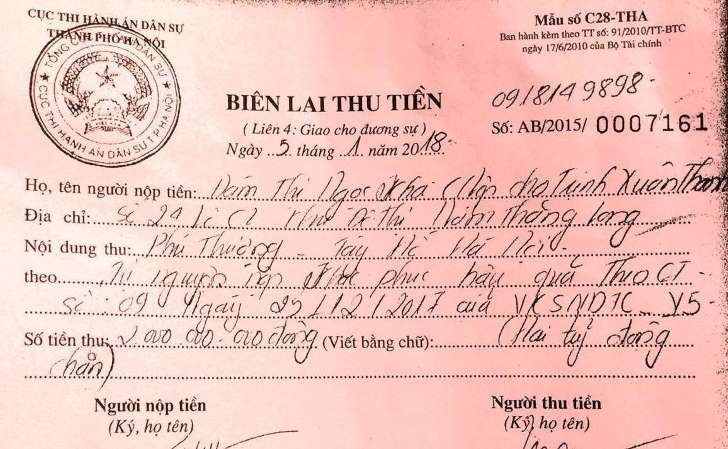 CỤC THI HÀNH ÁN DÂN SỰ
THÀNH PHỐ HÀ NỘI
Mẫu số C28-THA
Ban hành kèm theo TT số: 91/2010/TT-BTC
ngày 17/6/2010 của Bộ Tài chính
TỔNG CỤC THI HÀNH ÁN DÂN SỰ
CỤC THI HÀNH ÁN DÂN SỰ T.P HÀ NỘI
BIÊN LAI THU TIỀN
0918149898
(Liên 4: Giao cho đương sự)
Số: AB/2015/ 0007161
Ngày 5 tháng 1 năm 2018
Họ, tên người nộp tiền: Đàm Thị Ngọc Kha (Nộp cho Trịnh Xuân Thanh
Địa chỉ: Số 24 Khu Đô Thị Nam Thăng Long
Nội dung thu: Phú Thượng - Tây Hồ Hà Nội
theo Tự nguyện nộp khắc phục hậu quả Theo CT
số: 09 Ngày 25/12/2017 của VKSNDTC - V5
Số tiền thu: 2.000.000.000 đồng (Viết bằng chữ): (Hai tỷ đồng
chẵn)
Người nộp tiền
Người thu tiền
(Ký, họ tên)
(Ký, họ tên)